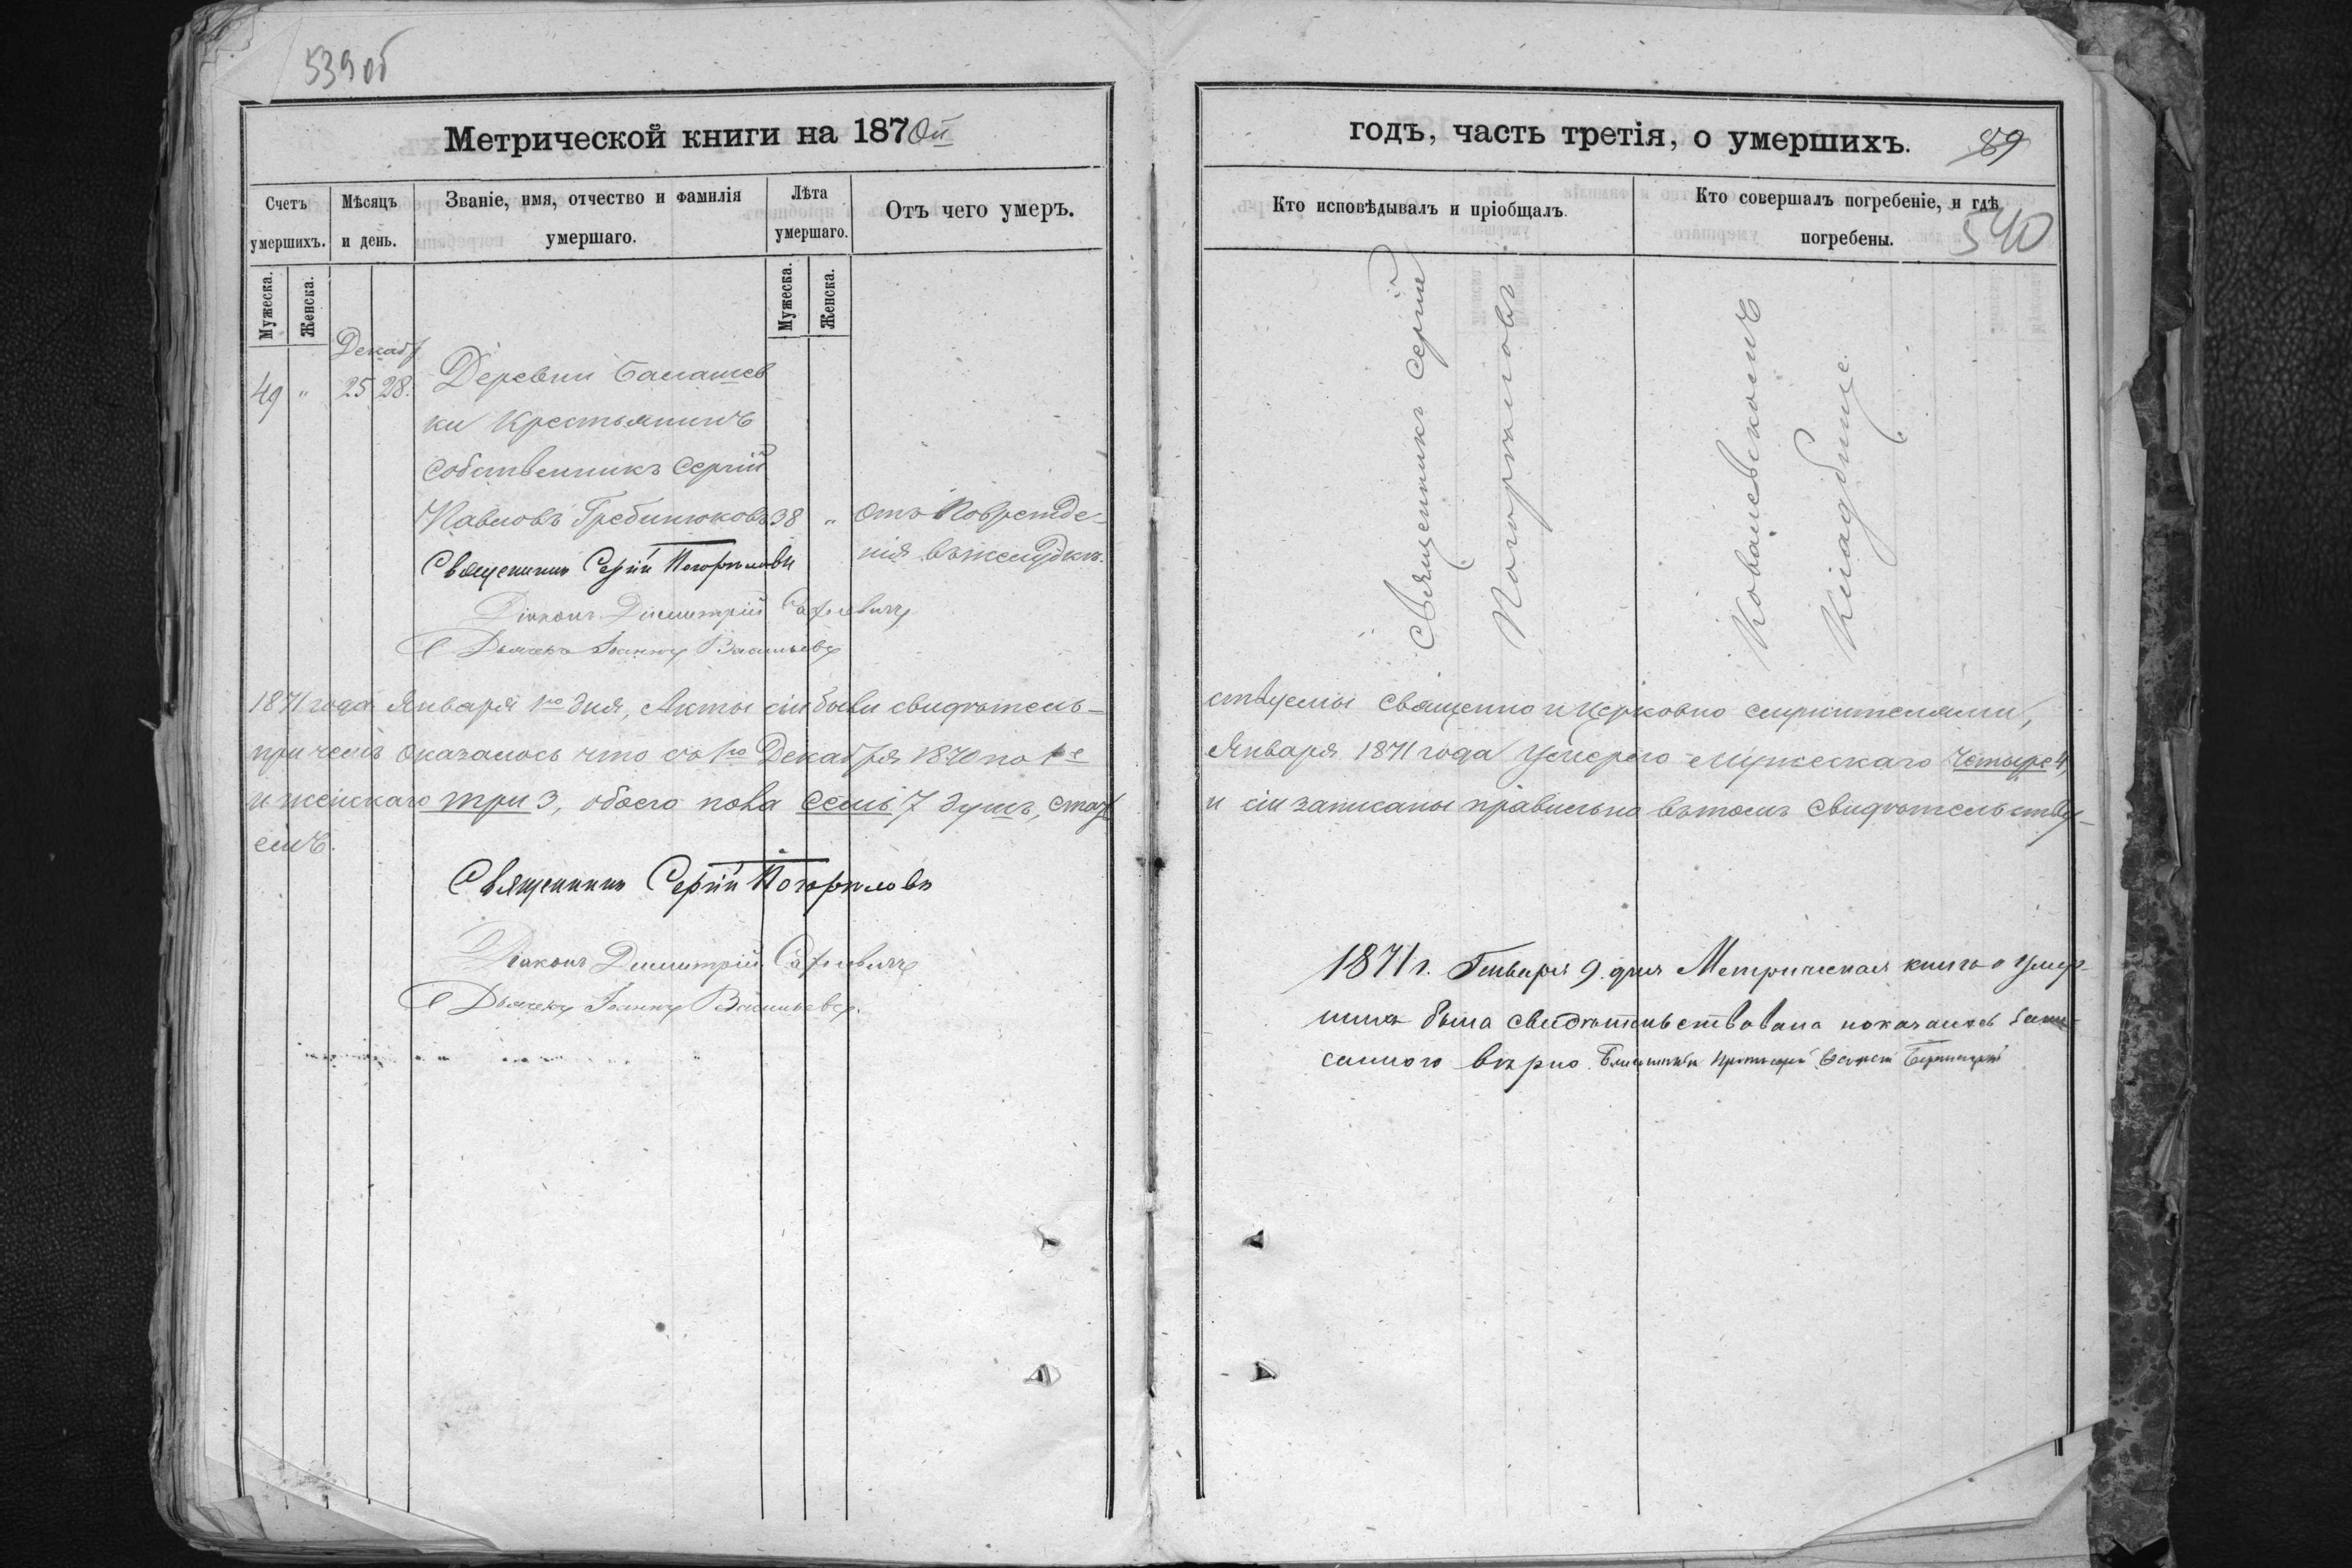 539 об
Метрической книги на 1870й
Счетъ умершихъ.
Мѣсяцъ и день.
Званіе, имя, отчество и фамилія умершаго.
Лѣта умершаго.
Отъ чего умеръ.
Мужеска.
Женска.
Мужеска.
Женска.
Декабр
49 " 25 28. Деревни Балашев
ки Крестьянинъ
Собственникъ Сергій
Павловъ Гребинюковъ 38 " отъ Поврежде-
нія въ желудкѣ.
Священникъ Сергій Погорѣловъ
Діаконъ Димитрій
Дьячекъ Іоаннъ Васильевъ
1871 года Января 1го дня, Акты сіи были свидѣтель-
при чемъ оказалось что съ 1го Декабря 1870 по 1е
и женскаго три 3, обоего пола семь 7 душъ,
емъ.
Священникъ Сергій Погорѣловъ
Діаконъ Димитрій
Дьячекъ Іоаннъ Васильевъ.
годъ, часть третія, о умершихъ.
89
540
Кто исповѣдывалъ и пріобщалъ.
Кто совершалъ погребеніе, и гдѣ погребены.
Священникъ Сергій
Погорѣловъ
Ковалевскомъ
Кладбище
ствуемы Священно и Церковно служителями,
Января 1871 года Умерло Мужескаго Четыре 4,
и сіи записаны правильно въ томъ Свидѣтельству-
1871 г. Генваря 9. дня Метрическая книга о умер-
шихъ была свидѣтельствована показалось запи-
саннoго вѣрно.